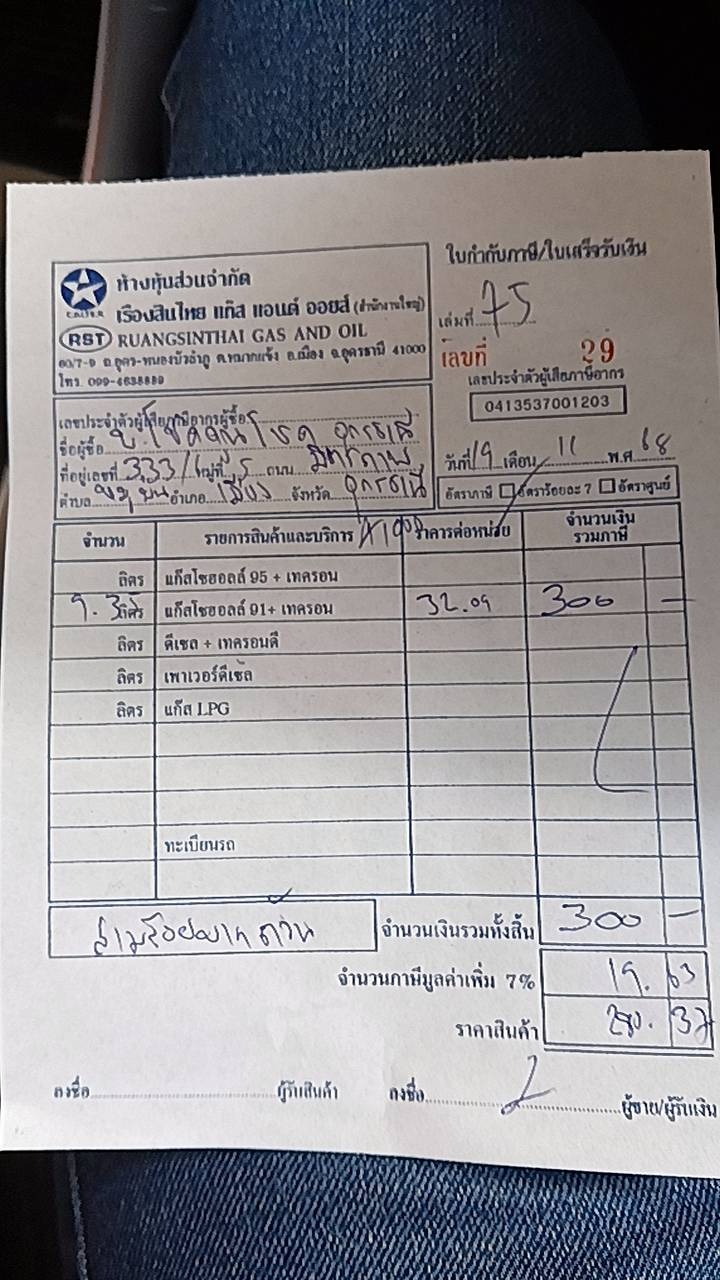 ใบกำกับภาษี/ใบเสร็จรับเงิน
ห้างหุ้นส่วนจำกัด
เรืองสินไทย แก๊ส แอนด์ ออยส์ (สำนักงานใหญ่)
CALTEX
RST RUANGSINTHAI GAS AND OIL
60/7-9 ถ.อุดร-หนองบัวลำภู ต.หมากแข้ง อ.เมือง จ.อุดรธานี 41000
โทร. 099-4638889
เล่มที่ 75
เลขที่ 29
เลขประจำตัวผู้เสียภาษีอากร
0413537001203
เลขประจำตัวผู้เสียภาษีอากรผู้ซื้อ
ชื่อผู้ซื้อ อุดรธานี
ที่อยู่เลขที่ 333/1 หมู่ที่ 5 ถนน มิตรภาพ
ตำบล อำเภอ เมือง จังหวัด อุดรธานี
วันที่ 19 เดือน 11 พ.ศ. 68
อัตราภาษี อัตราร้อยละ 7 อัตราศูนย์
จำนวน รายการสินค้าและบริการ ราคาต่อหน่วย จำนวนเงินรวมภาษี
ลิตร แก๊สโซฮอลล์ 95 + เทครอน
9.35 ลิตร แก๊สโซฮอลล์ 91+ เทครอน 32.09 300 —
ลิตร ดีเซล + เทครอนดี
ลิตร เพาเวอร์ดีเซล
ลิตร แก๊ส LPG
ทะเบียนรถ
สามร้อยบาทถ้วน จำนวนเงินรวมทั้งสิ้น 300 —
จำนวนภาษีมูลค่าเพิ่ม 7% 19.63
ราคาสินค้า 280.37
ลงชื่อ ผู้รับสินค้า ลงชื่อ ผู้ขาย/ผู้รับเงิน